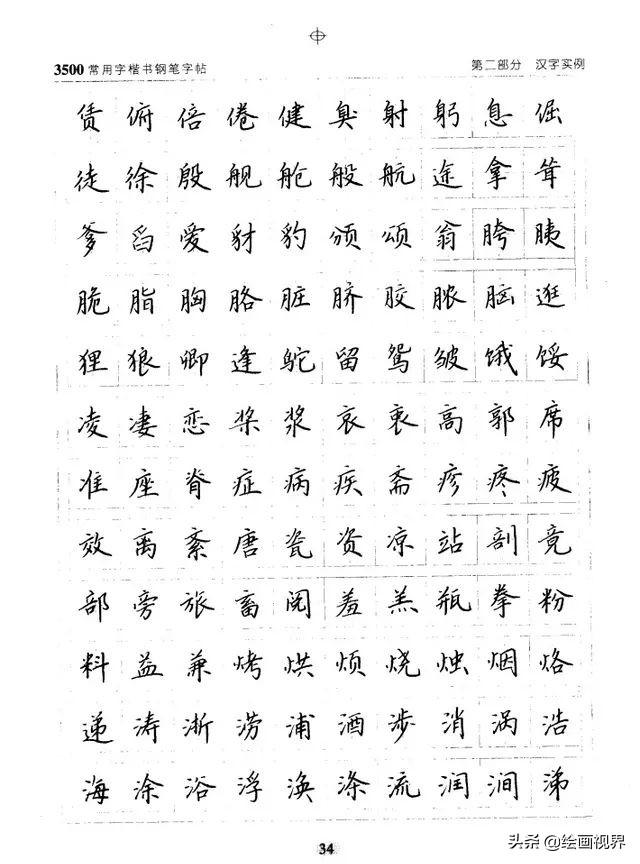 3500常用字楷书钢笔字帖 第二部分 汉字实例
赁俯倍倦健臭射躬息倔
徒徐殷舰舱般航途拿耸
爹舀爱豺豹颁颂翁胯胰
脆脂胸胳脏脐胶脓脑逛
狸狼卿逢鸵留鸳皱饿馁
凌凄恋桨浆哀衷高郭席
准座脊症病疾斋疹疼疲
效离紊唐瓷资凉站剖竞
部旁旅畜阅羞羔瓶拳粉
料益兼烤烘烦烧烛烟烙
递涛浙涝浦酒涉消涡浩
海涂浴浮涣涤流润涧涕
34
头条 @绘画视界